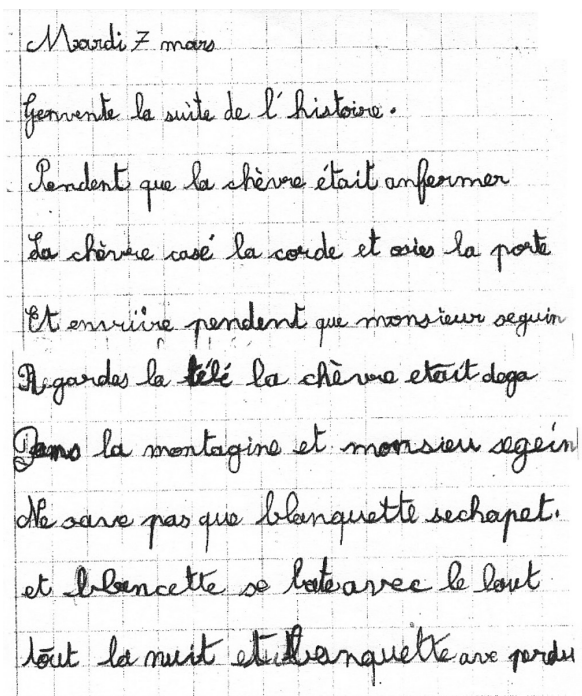 Mardi 7 mars
Jenvente la suite de l'histoire.
Pendent que la chèvre était anfermer
La chèvre casé la corde et la porte
Et pendent que monsieur seguin
Regardes la télé la chèvre etait dega
Dans la montagine et monsieu segein
Ne save pas que blanquette sechapet.
et blancette se bate avec le lout
tout la nuit et blanquette ave perdu